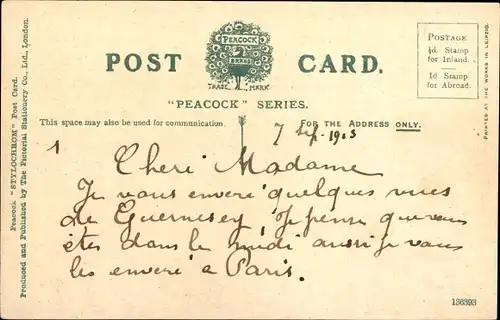 POST CARD.
PEACOCK
BRAND
TRADE MARK
"PEACOCK" SERIES.
POSTAGE
½d. Stamp
for Inland.
1d. Stamp
for Abroad.
PRINTED AT THE WORKS IN LEIPZIG.
Peacock "STYLOCHROM" Post Card.
Produced and Published by The Pictorial Stationery Co., Ltd., London.
This space may also be used for communication.
FOR THE ADDRESS ONLY.
7 Sep. 1905
1
Cheri Madame
Je vous enveré quelques vues
de Guernesey, Je pense que vous
étes dans le midi aussi je vous
les enveré a Paris.
136393